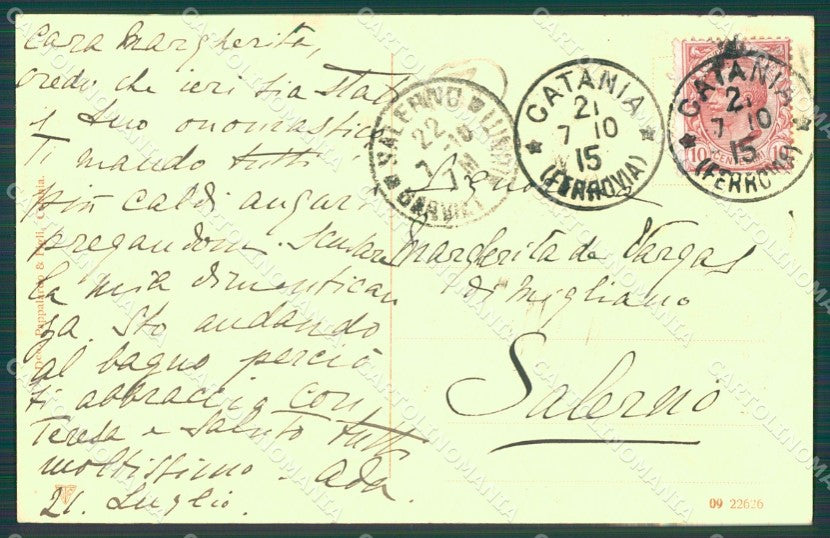 Cara Margherita,
credo che ieri sia stato
il tuo onomastico
Ti mando tutti i
più caldi auguri
pregandoti scusare
la mia dimentican
za. Sto andando
al bagno perciò
ti abbraccio con
Teresa e saluto tutti
moltissimo. Ada.
21. Luglio.
SALERNO
22
CATANIA
21
7 10
15
(FERROVIA)
CATANIA
21
7 10
15
(FERROVIA)
10 CENTESIMI 10
Margherita de Vargas
di Migliano
Salerno
09 22626
CARTOLINOMANIA